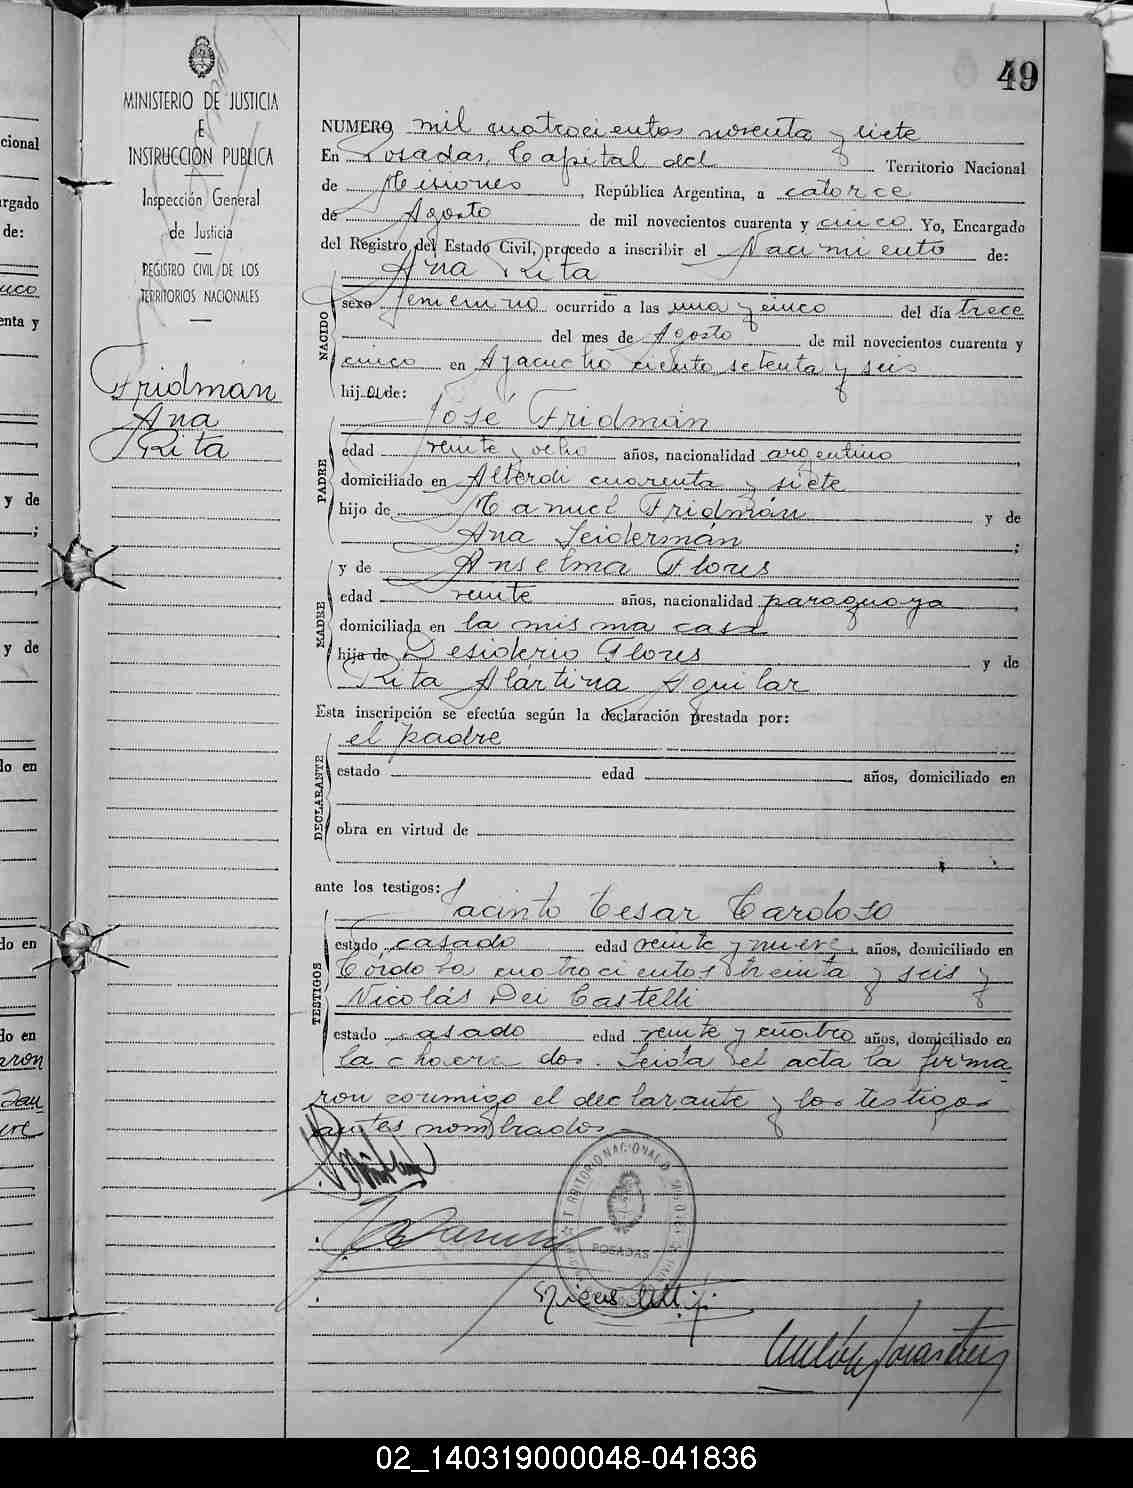 49
MINISTERIO DE JUSTICIA
E
INSTRUCCION PUBLICA
Inspección General
de Justicia
REGISTRO CIVIL DE LOS
TERRITORIOS NACIONALES
Fridmán
Ana
Rita
NUMERO mil cuatrocientos noventa y siete
En Posadas, Capital del Territorio Nacional
de Misiones, República Argentina, a catorce
de Agosto de mil novecientos cuarenta y cinco. Yo, Encargado
del Registro del Estado Civil, procedo a inscribir el Nacimiento de:
Ana Rita
NACIDO
sexo femenino ocurrido a las una y cinco del día trece
del mes de Agosto de mil novecientos cuarenta y
cinco en Ayacucho ciento setenta y seis
hija de:
José Fridmán
PADRE
edad veinte y ocho años, nacionalidad argentino,
domiciliado en Alberdi cuarenta y siete
hijo de Manuel Fridmán y de
Ana Seidermán;
y de Anselma Flores
MADRE
edad veinte años, nacionalidad paraguaya,
domiciliada en la misma casa
hija de Desiderio Flores y de
Rita Martina Aguilar
Esta inscripción se efectúa según la declaración prestada por:
el padre
DECLARANTE
estado edad años, domiciliado en
obra en virtud de
ante los testigos:
Jacinto Cesar Cardoso
TESTIGOS
estado casado edad veinte y nueve, años, domiciliado en
Córdoba cuatrocientos treinta y seis y
Nicolás Dei Castelli
estado casado edad veinte y cuatro años, domiciliado en
la chacra dos. Leida el acta la firma
ron conmigo el declarante y los testigos
antes nombrados.
TERRITORIO NACIONAL D MISIONES
POSADAS
02_140319000048-041836